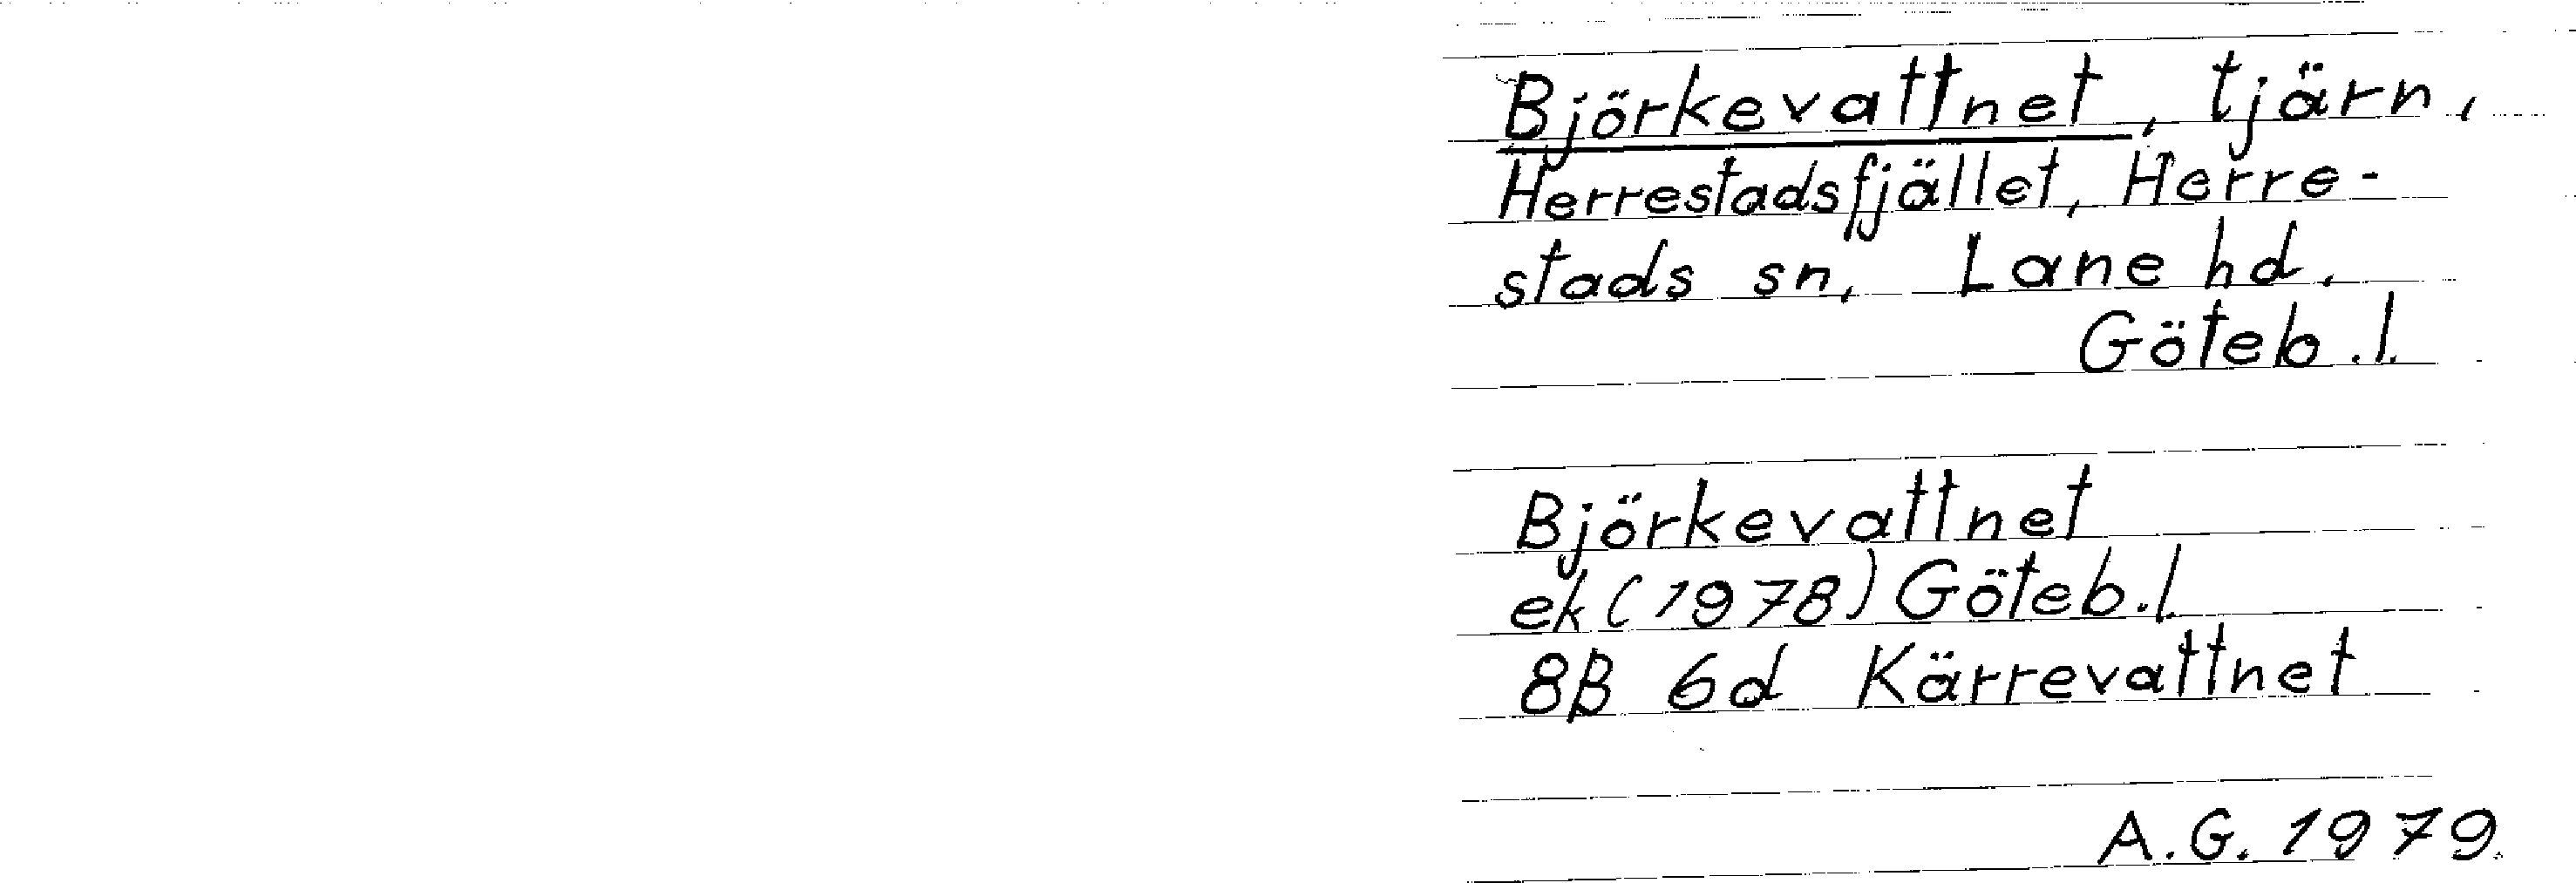 Björkevattnet, tjärn,
Herrestadsfjället, Herre-
stads sn, Lane hd,
Göteb.l.
Björkevattnet
ek (1978) Göteb.l.
8B 6d Kärrevattnet
A.G. 1979.